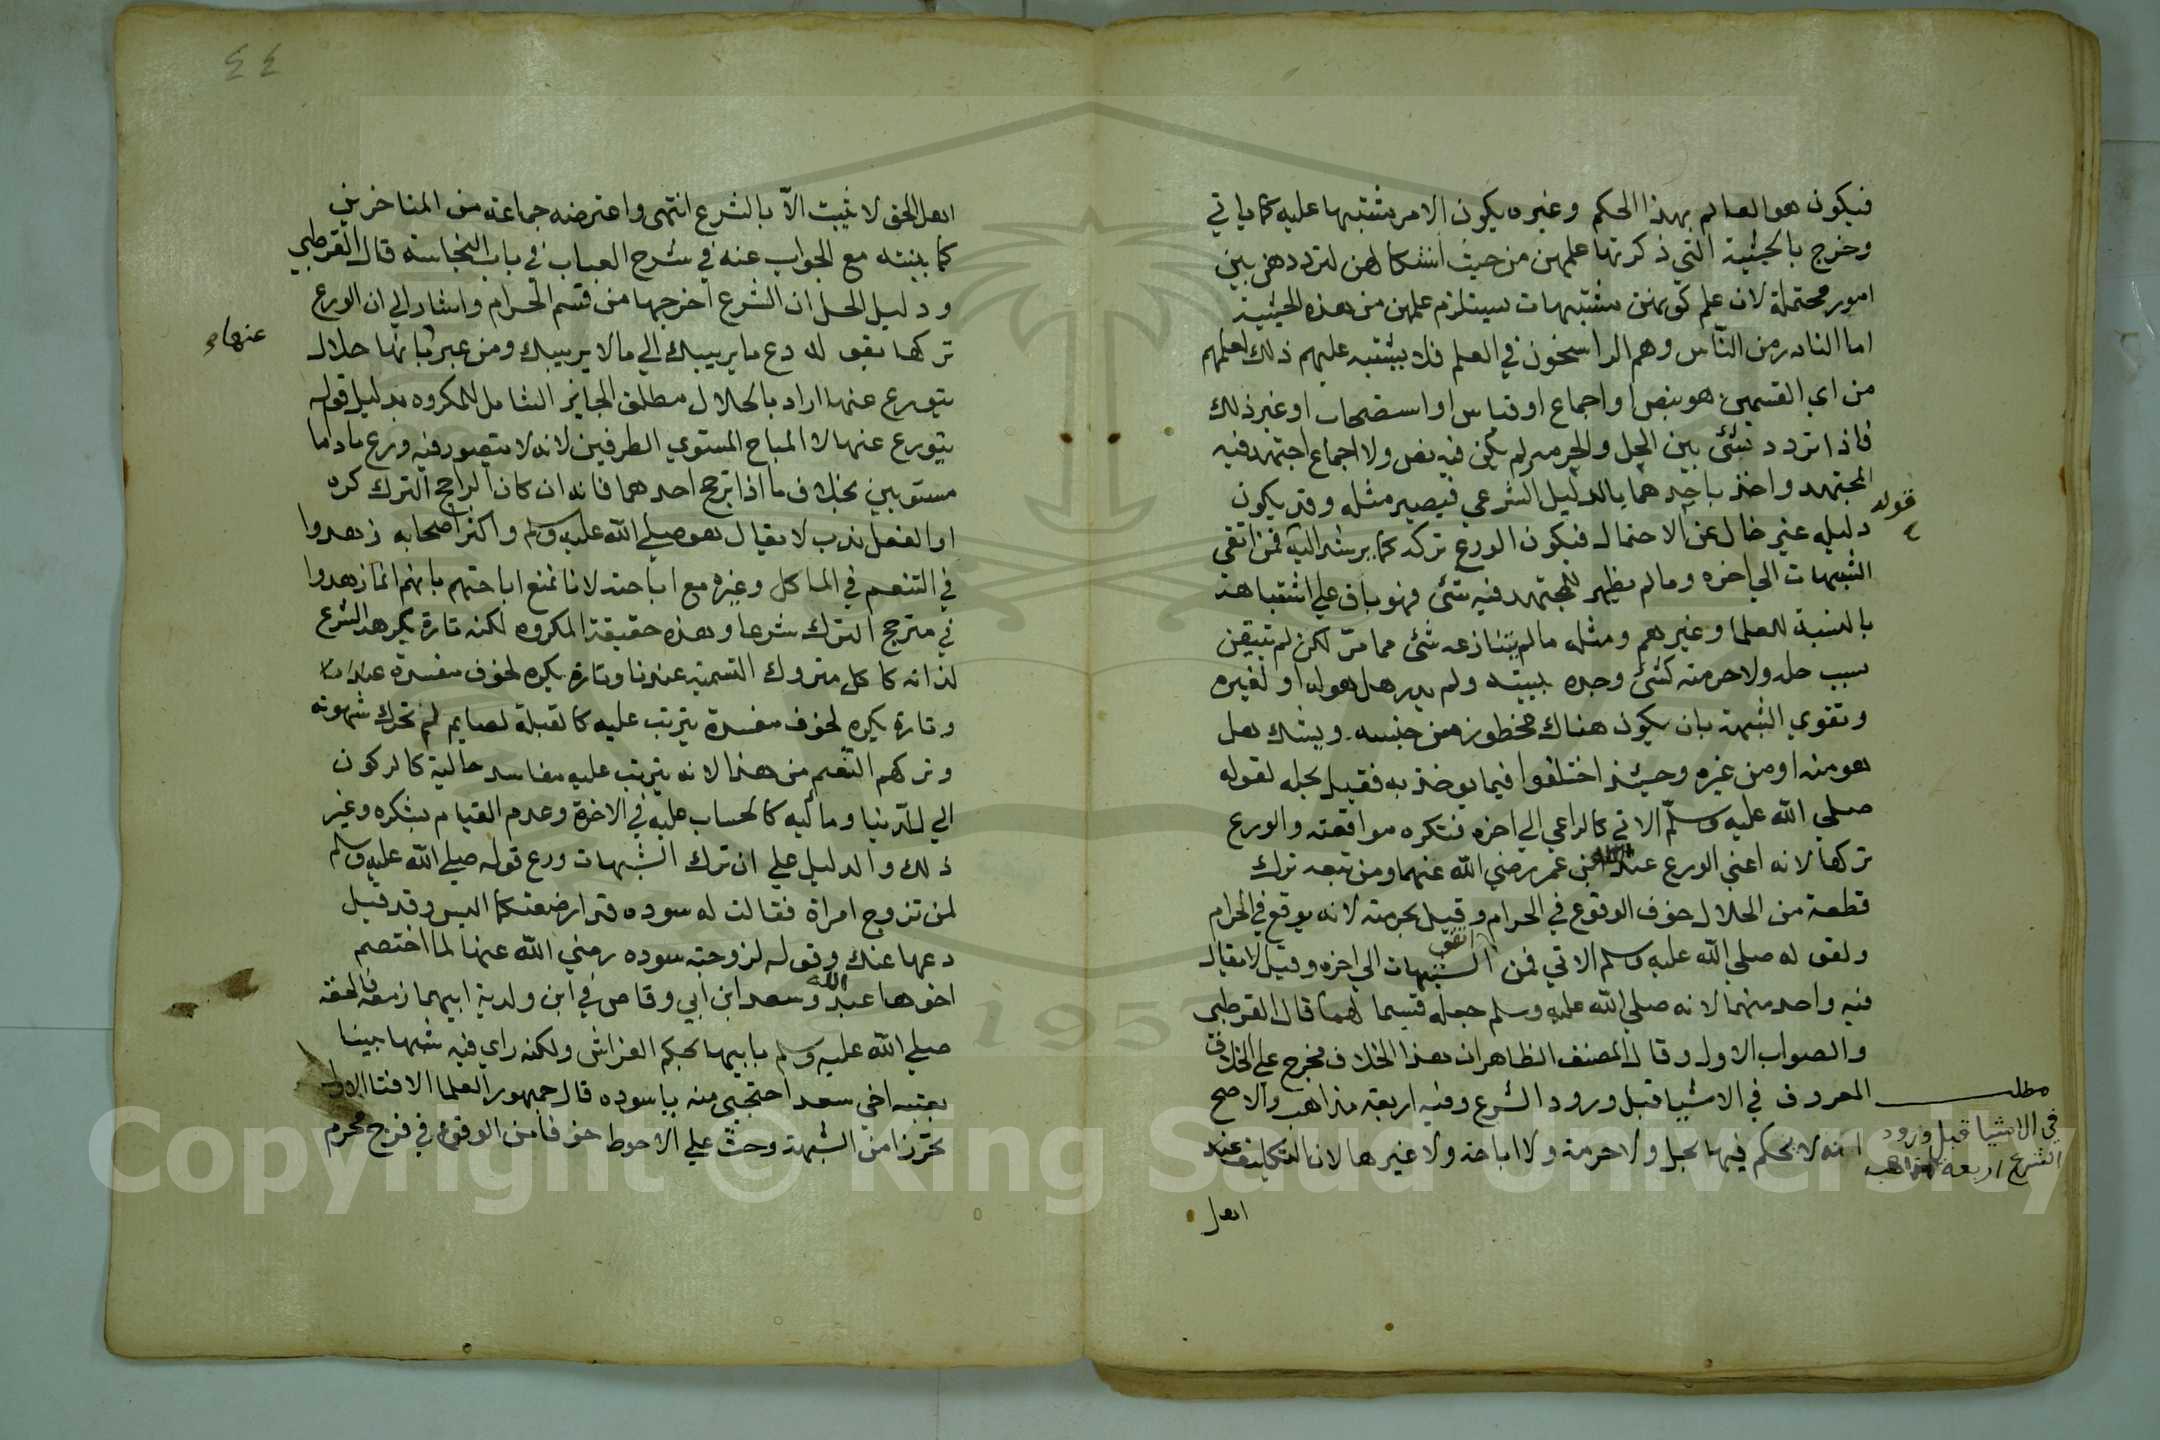 فيكون هو العالم بهذا الحكم وغيره يكون الامر مشتبها عليه كما ياتي
وخرج بالحيثية التي ذكرتها علمهن من حيث اشكالهن لترددهن بين
امور محتملة لان علم كونهن مشتبهات يستلزم علمهن من هذه الحيثية
اما النادر من الناس وهم الراسخون في العلم فلا يشتبه عليهم ذلك لعلمهم
من اي القسمين هو بنص او اجماع او قياس او استصحاب او غير ذلك
فاذا تردد شئ بين الحل والحرمه ولم يكن فيه نص ولا اجماع اجتهد فيه
المجتهد واخذ باحدهما بالدليل الشرعي فيصير مثله وقد يكون
قوله
دليله غير خال عن الاحتمال فيكون الورع تركه كما يرشد اليه فمن اتقي
الشبهات الي اخره وما لم يظهر للمجتهد فيه شئ فهو باق علي اشتباهه
بالنسبة للعلما وغيرهم ومثله ما لم يتنازعه شئ مما مرّ لكن لم يتيقن
سبب حله ولا حرمته كشئ وجده ببيته ولم يدر هل هو له او لغيره
وتقوي الشبهة بان يكون هناك محظور من جنسه ويشك هل
هو منه او من غيره وحينئذ اختلفوا فيما يوخذ به فقيل بحله لقوله
صلي الله عليه وسلم الاتي كالراعي الي اخره فتكره مواقعته والورع
تركها لانه اعني الورع عند ابن عمر رضي الله عنهما ومن تبعه ترك
قطعة من الحلال خوف الوقوع في الحرام وقيل بحرمته لانه يوقع في الحرام
ولقوله صلي الله عليه وسلم الاتي فمن اتقى الشبهات الي اخره وقيل لا يقال
فيه واحد منهما لانه صلي الله عليه وسلم جعله قسيما لهما قال القرطبي
والصواب الاول وقال المصنف الظاهر ان هذا الخلاف مخرج علي الخلاف
المعروف في الاشيا قبل ورود الشرع وفيه اربعة مذاهب والاصح
انه لا يحكم فيها بحل ولا حرمة ولا اباحة ولا غيرها لان التكليف عند
مطلب
في الاشيا قبل ورود
الشرع اربعة مذاهب
اهل
٤٤
اهل الحق لا يثبت الاّ بالشرع انتهى واعترضه جماعة من المتاخرين
كما بينته مع الجواب عنه في شرح العباب في باب النجاسة قال القرطبي
ودليل الحل ان الشرع اخرجها من قسم الحرام واشار الي ان الورع
تركها بقوله دع ما يريبك الي ما لا يريبك ومن عبر بانها حلال
عنها
يتورع عنها اراد بالحلال مطلق الجايز الشامل للمكروه بدليل قوله
يتورع عنها لا المباح المستوي الطرفين لانه لا يتصور فيه ورع ما داما
مستويين بخلاف ما اذا ترجح احدهما فانه ان كان الراجح الترك كره
او الفعل ندب لا يقال هو صلي الله عليه وسلم واكثر اصحابه زهدوا
في التنعم في الماكل وغيره مع اباحته لانا نمنع اباحتهم بانهم انما زهدوا
في مترجح الترك شرعا وهذه حقيقة المكروه لكنه تارة يكرهه الشرع
لذاته كاكل متروك التسمية عندنا وتارة يكره لخوف مفسدة
وتارة يكره لخوف مفسدة يترتب عليه كالقبلة لصايم لم تحرك شهوته
وتركهم التنعم من هذا لانه يترتب عليه مفاسد حالية كالركون
الي الدنيا ومآليه كالحساب عليه في الاخرة وعدم القيام بشكره وغير
ذلك والدليل علي ان ترك الشبهات ورع قوله صلي الله عليه وسلم
لمن تزوج امراة فقالت له سوده قد ارضعتكما اليس وقد قيل
دعها عنك وقوله لزوجته سوده رضي الله عنها لما اختصم
اخوها عبد الله وسعد ابن ابي وقاص في ابن وليدة ابيهما زمعة فالحقه
صلي الله عليه وسلم بابيها بحكم الفراش ولكنه راي فيه شبها بينا
بعتبه اخي سعد احتجبي منه يا سوده قال جمهور العلما الافتا الاول
تحرزا من الشبهة وحث علي الاحوط خوفا من الوقوع في فرج محرم
Copyright © King Saud University
1957